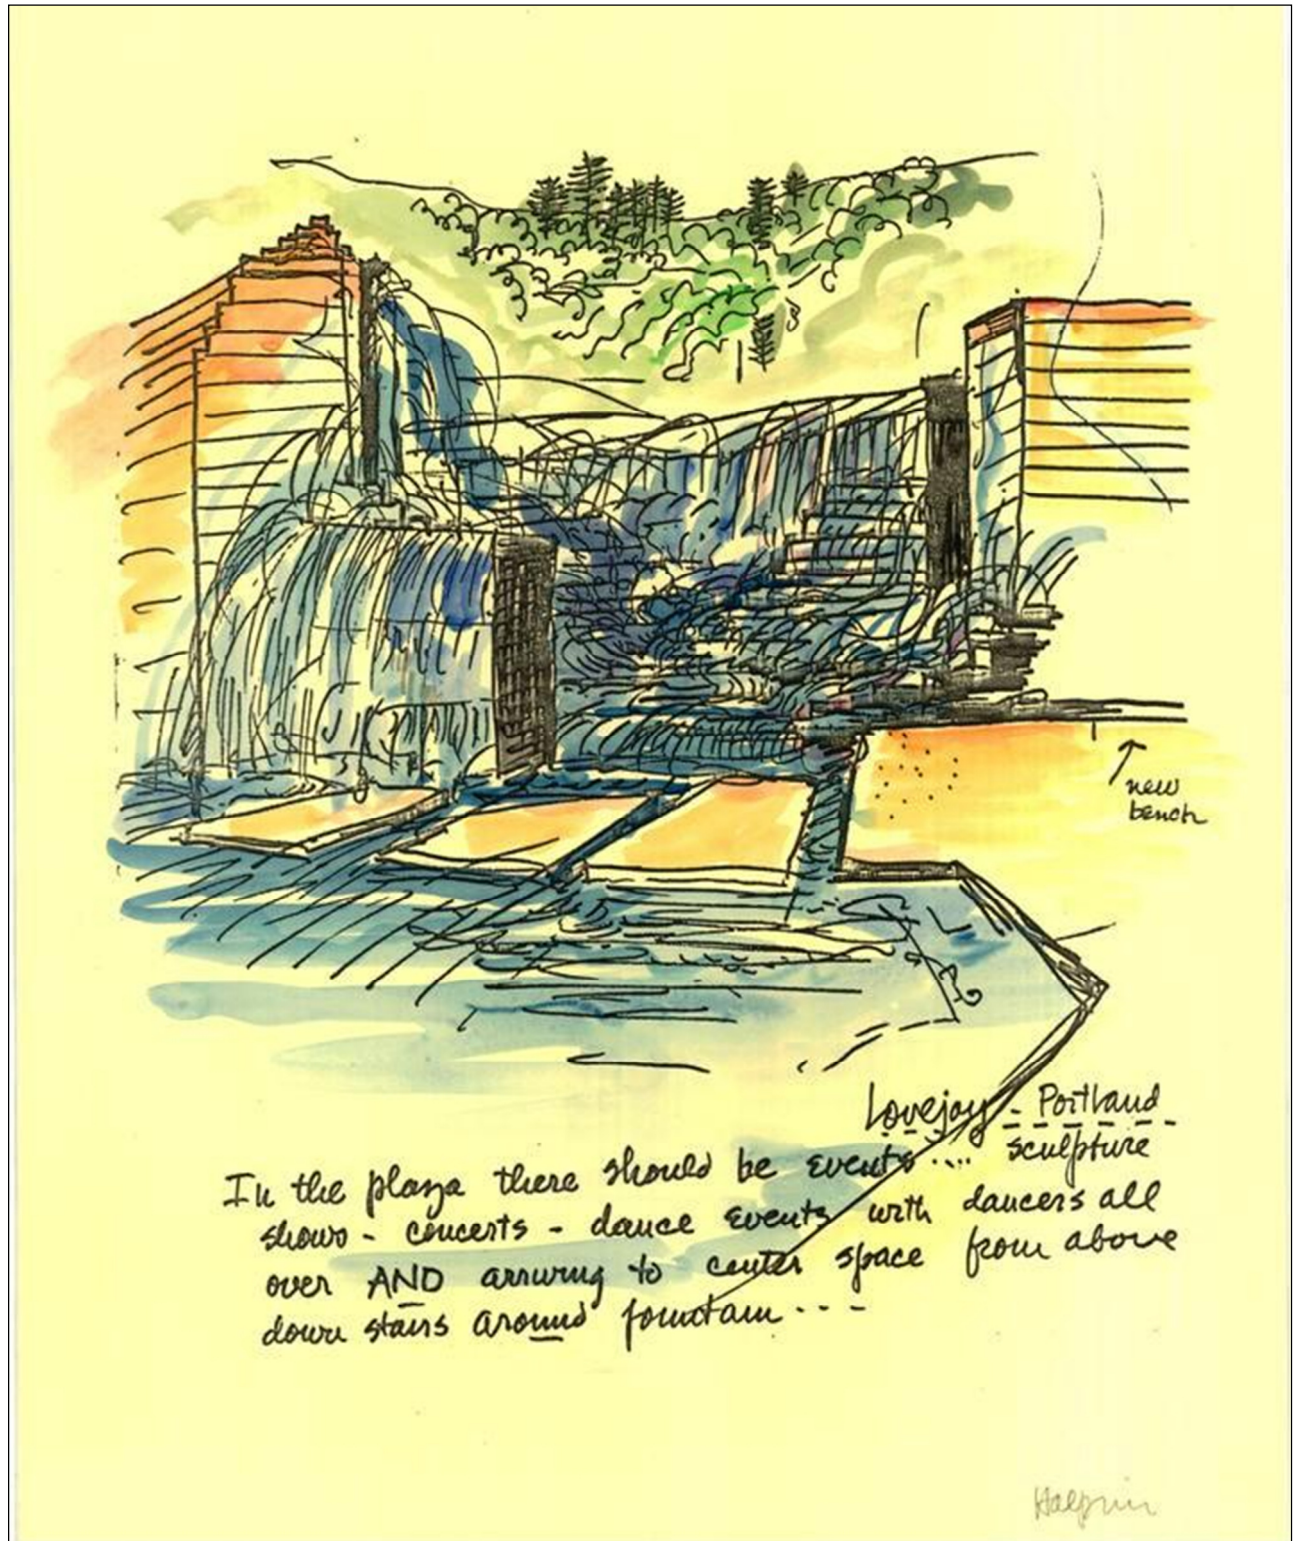 new
bench
Lovejoy - Portland
In the plaza there should be events .... sculpture
shows - concerts - dance events with dancers all
over AND arriving to center space from above
down stairs around fountain ---
Halprin